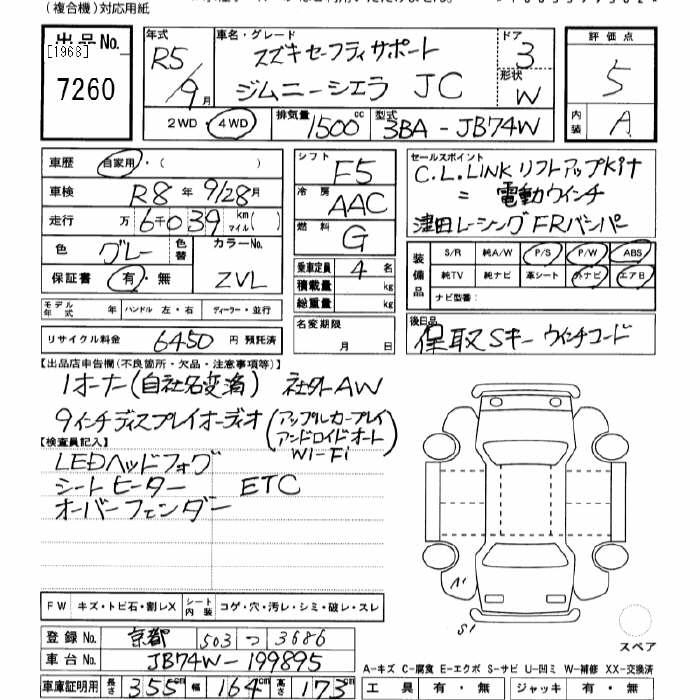 (複合機)対応用紙
出品No.
[1968]
7260
年式
R5/9月
車名・グレード
スズキセーフティサポート
ジムニーシエラ JC
ドア
3
形状
W
評価点
5
内装
A
2WD・4WD
排気量
1500cc
型式
3BA-JB74W
車歴
自家用・( )
車検
R8年9/28月
走行
万6千039km マイル( )
色
グレー
色替
カラーNo.
ZVL
保証書
有・無
モデル年式 年 ハンドル 左・右 ディーラー・並行
リサイクル料金 6450円 預託済
シフト
F5
冷房
AAC
燃料
G
乗車定員 4名
積載量 kg
総重量 kg
名変期限
月 日
セールスポイント
C.L.LINK リフトアップkit
= 電動ウインチ
津田レーシングFRバンパー
装備品
S/R 純A/W P/S P/W ABS
純TV 純ナビ 革シート 外ナビ エアB
ナビ型番:
後日品
保取Sキー ウインチコード
【出品店申告欄(不良箇所・欠品・注意事項等)】
1オーナー(自社名変済) 社外AW
9インチディスプレイオーディオ(アップルカープレイ
アンドロイドオート
WI-Fi)
【検査員記入】
LEDヘッドフォグ
シートヒーター ETC
オーバーフェンダー
A1
S1
スペア
FW キズ・トビ石・割レX シート内装 コゲ・穴・汚レ・シミ・破レ・スレ
登録No. 京都 503 つ 3686
車台No. JB74W-199895
車庫証明用 長さ 355cm 幅 164cm 高さ 173cm
A-キズ C-腐食 E-エクボ S-サビ U-凹ミ W-補修 XX-交換済
工具 有・無 ジャッキ 有・無